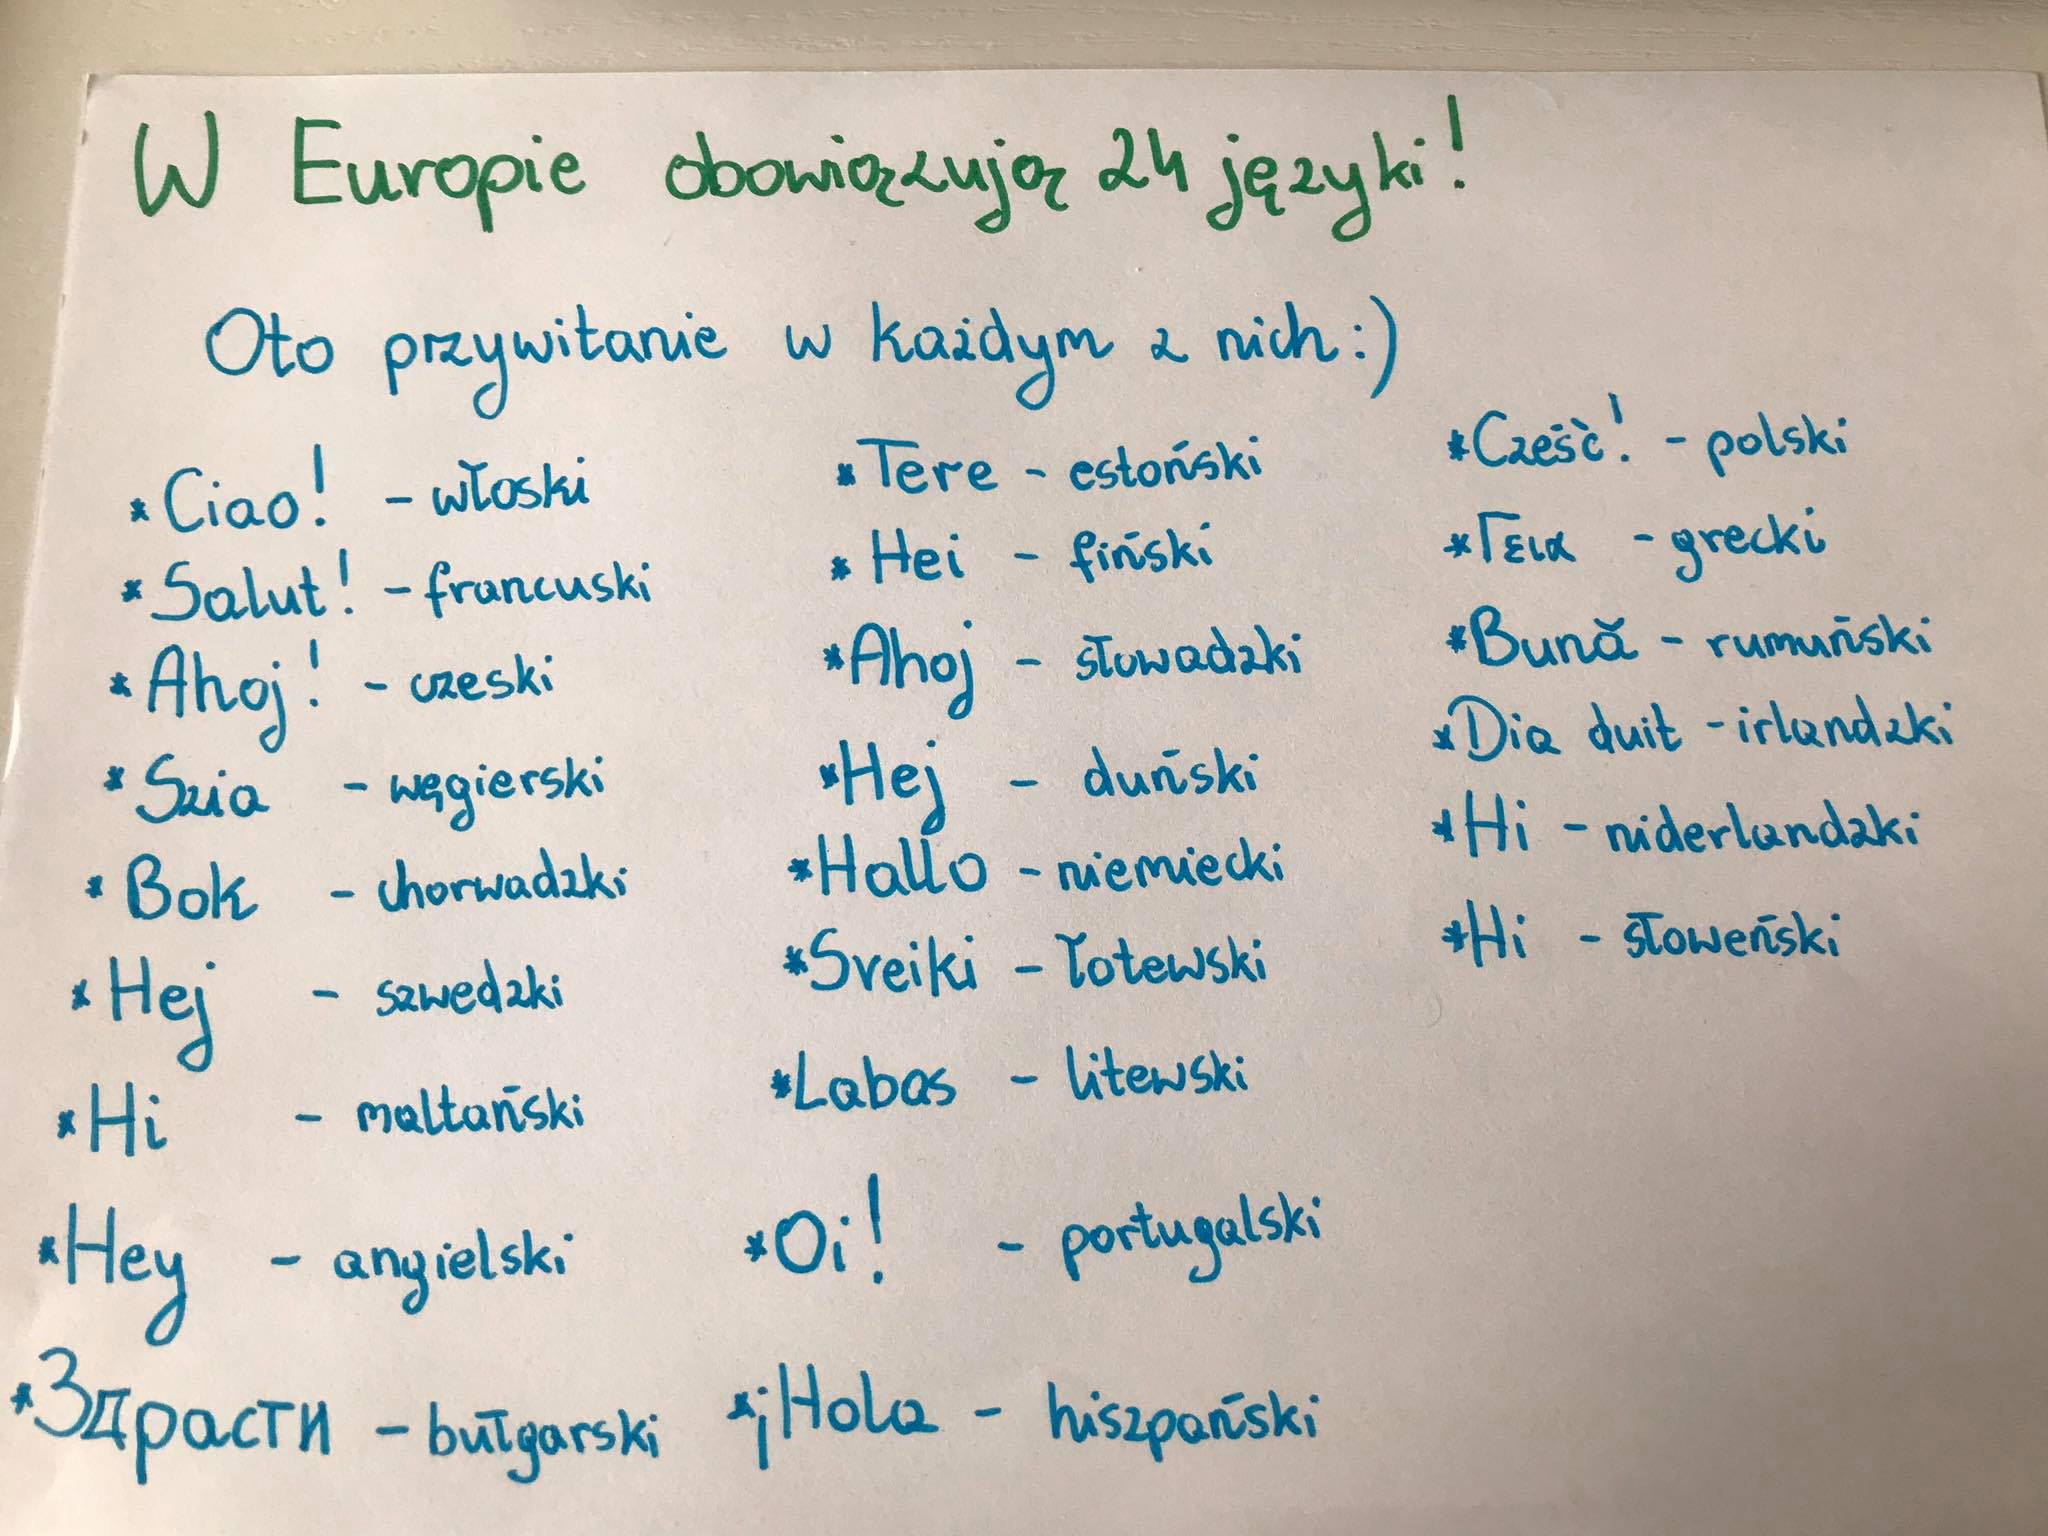 W Europie obowiązują 24 języki!
Oto przywitanie w każdym z nich:)
*Ciao! - włoski
*Salut! - francuski
*Ahoj! - czeski
*Szia - węgierski
*Bok - chorwadzki
*Hej - szwedzki
*Hi - maltański
*Hey - angielski
*Здрасти - bułgarski
*Tere - estoński
*Hei - fiński
*Ahoj - słowadzki
*Hej - duński
*Hallo - niemiecki
*Sveiki - łotewski
*Labas - litewski
*Oi! - portugalski
*¡Hola - hiszpański
*Cześć! - polski
*Γεια - grecki
*Bună - rumuński
*Dia duit - irlandzki
*Hi - niderlandzki
*Hi - słoweński